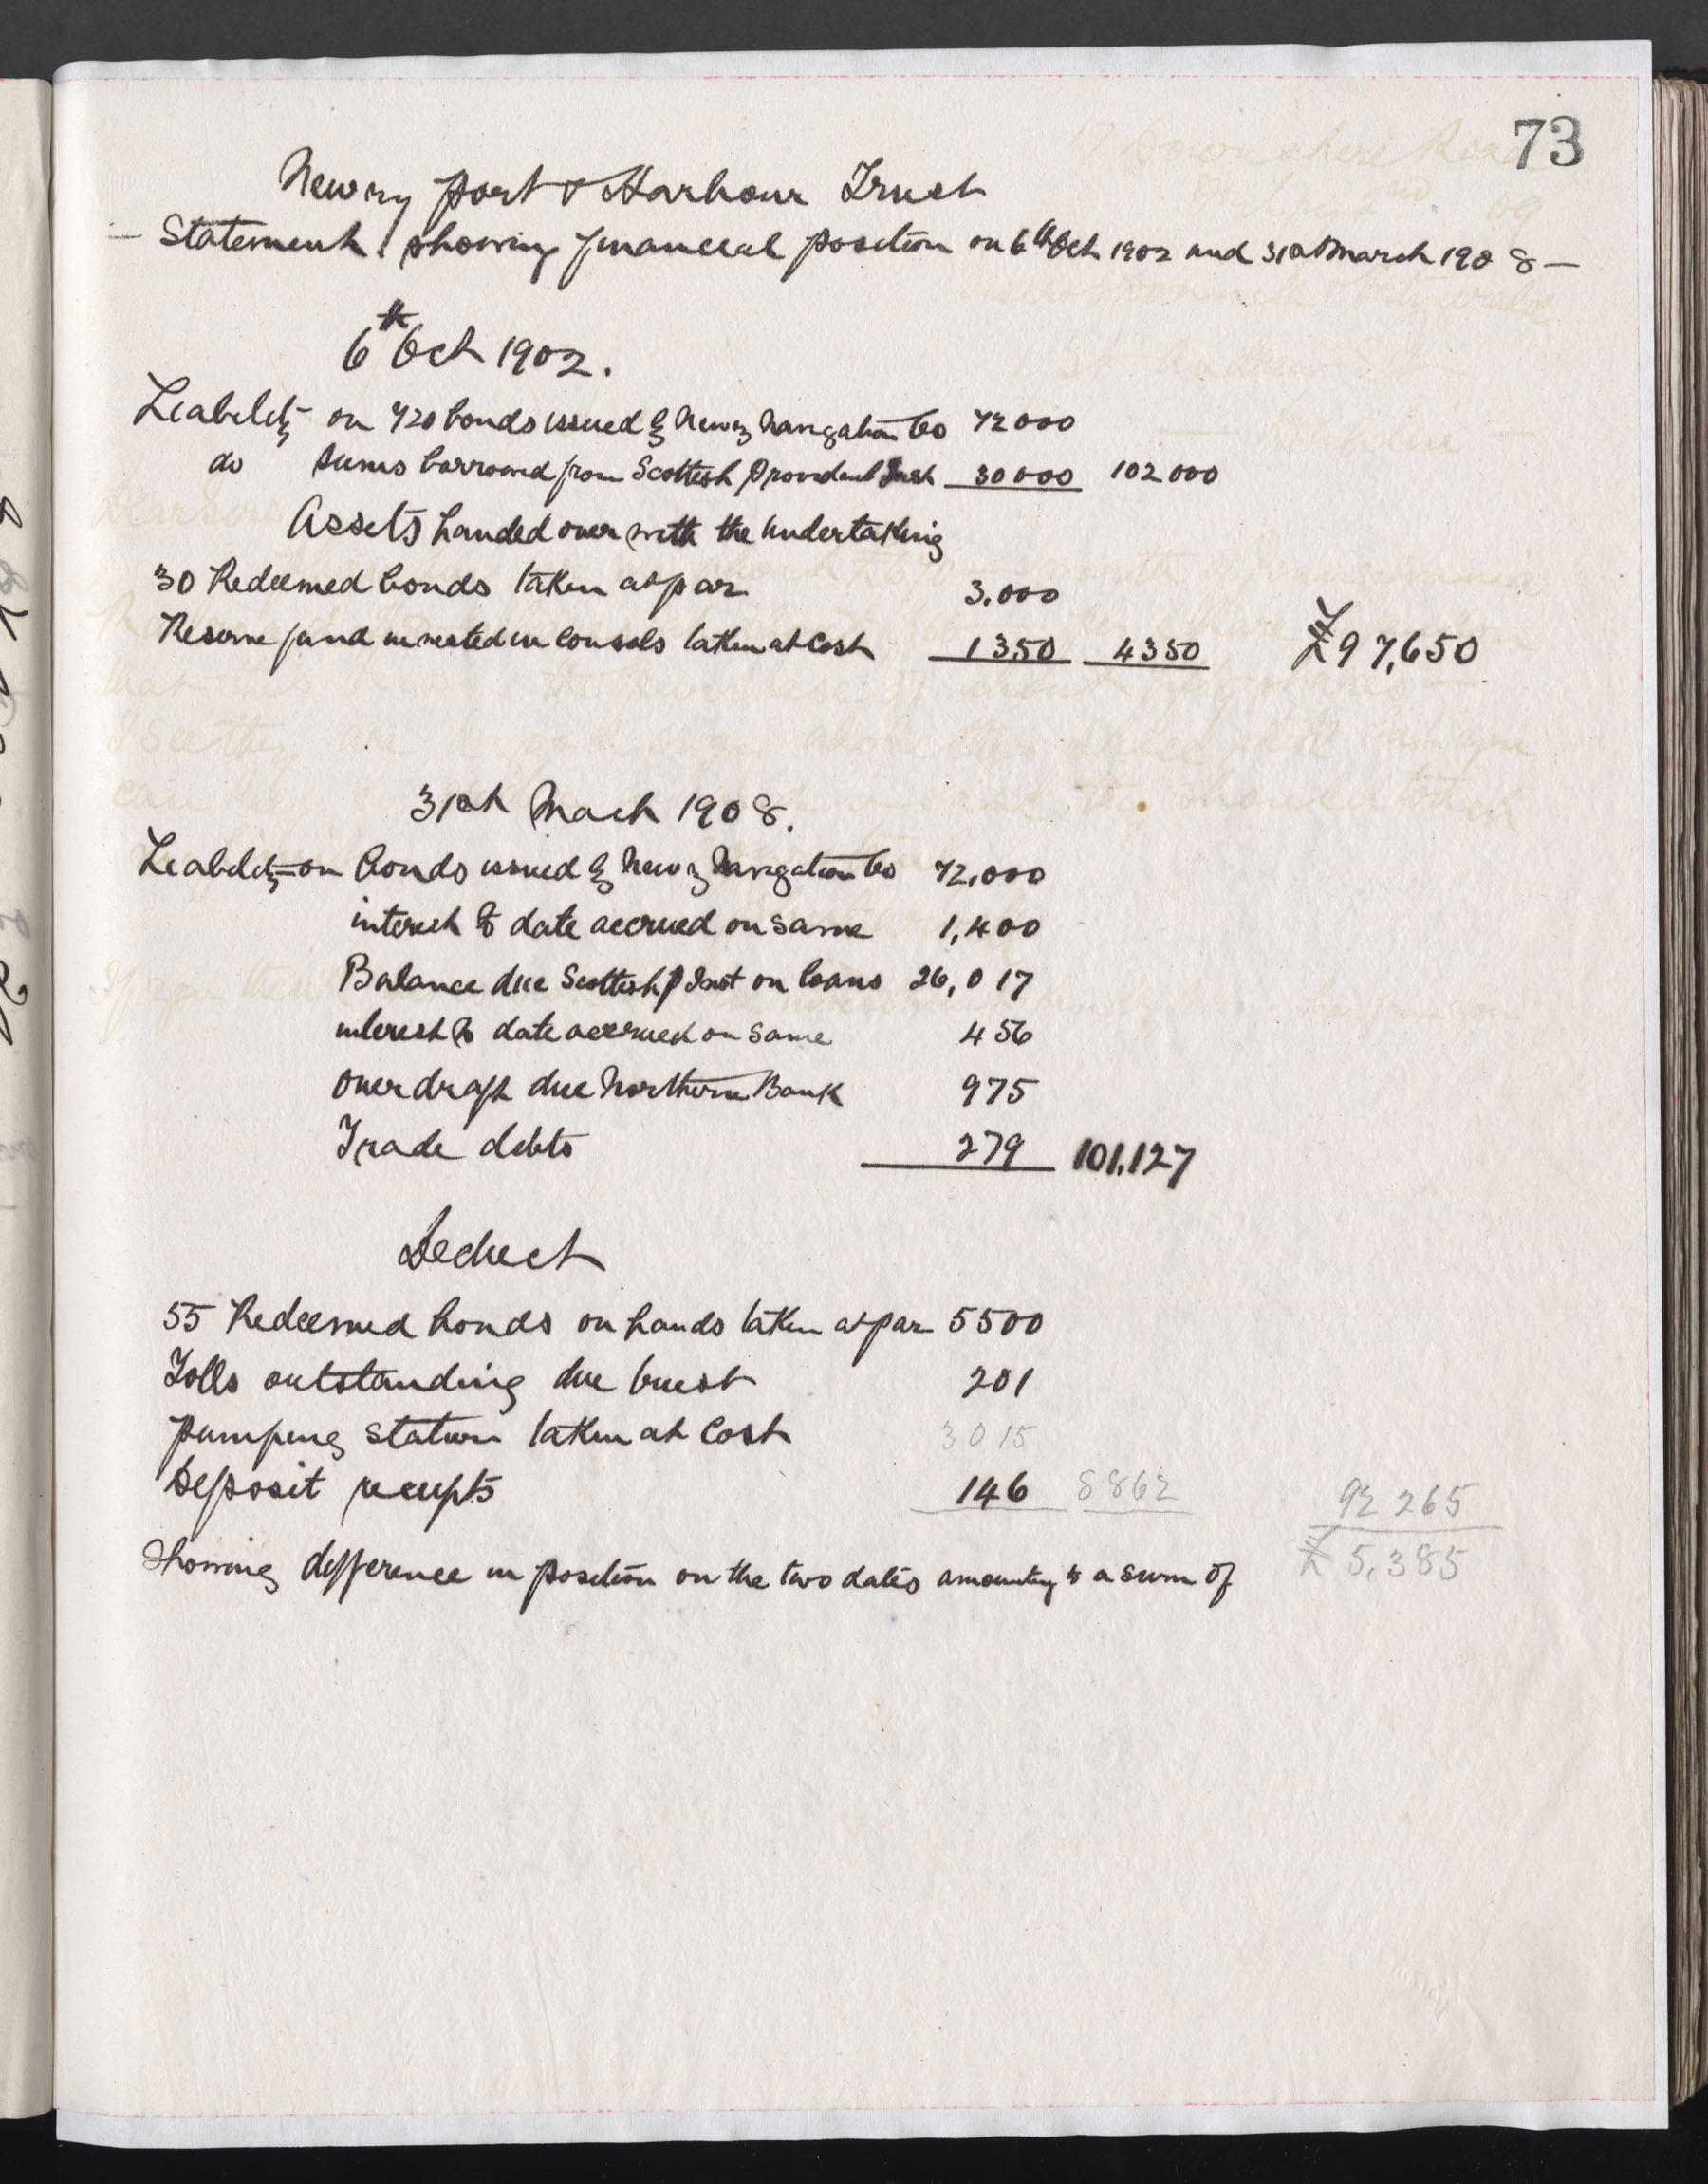 73
Newry port & Harbour Trust
— Statement showing financial position on 6th Oct 1902 and 31st March 1908 —
6th Oct 1902.
Liability on 720 bonds issued by Newry Navigation Co 72000
do sums borrowed from Scottish Provident Inst 30000 102000
Assets handed over with the undertaking
30 Redeemed bonds taken at par 3.000
Reserve fund invested in Consols taken at Cost 1350 4350 £97,650
31st March 1908.
Liability on bonds issued by Newry Navigation Co 72,000
interest to date accrued on same 1,400
Balance due Scottish P Inst on loans 26,017
interest to date accrued on same 456
overdraft due Northern Bank 975
Trade debts 279 101,127
Deduct
55 Redeemed bonds on hands taken at par 5500
Tolls outstanding due trust 201
pumping station taken at Cost 3015
Deposit receipts 146 8862 92 265
Showing difference in position on the two dates amounting to a sum of £5,385